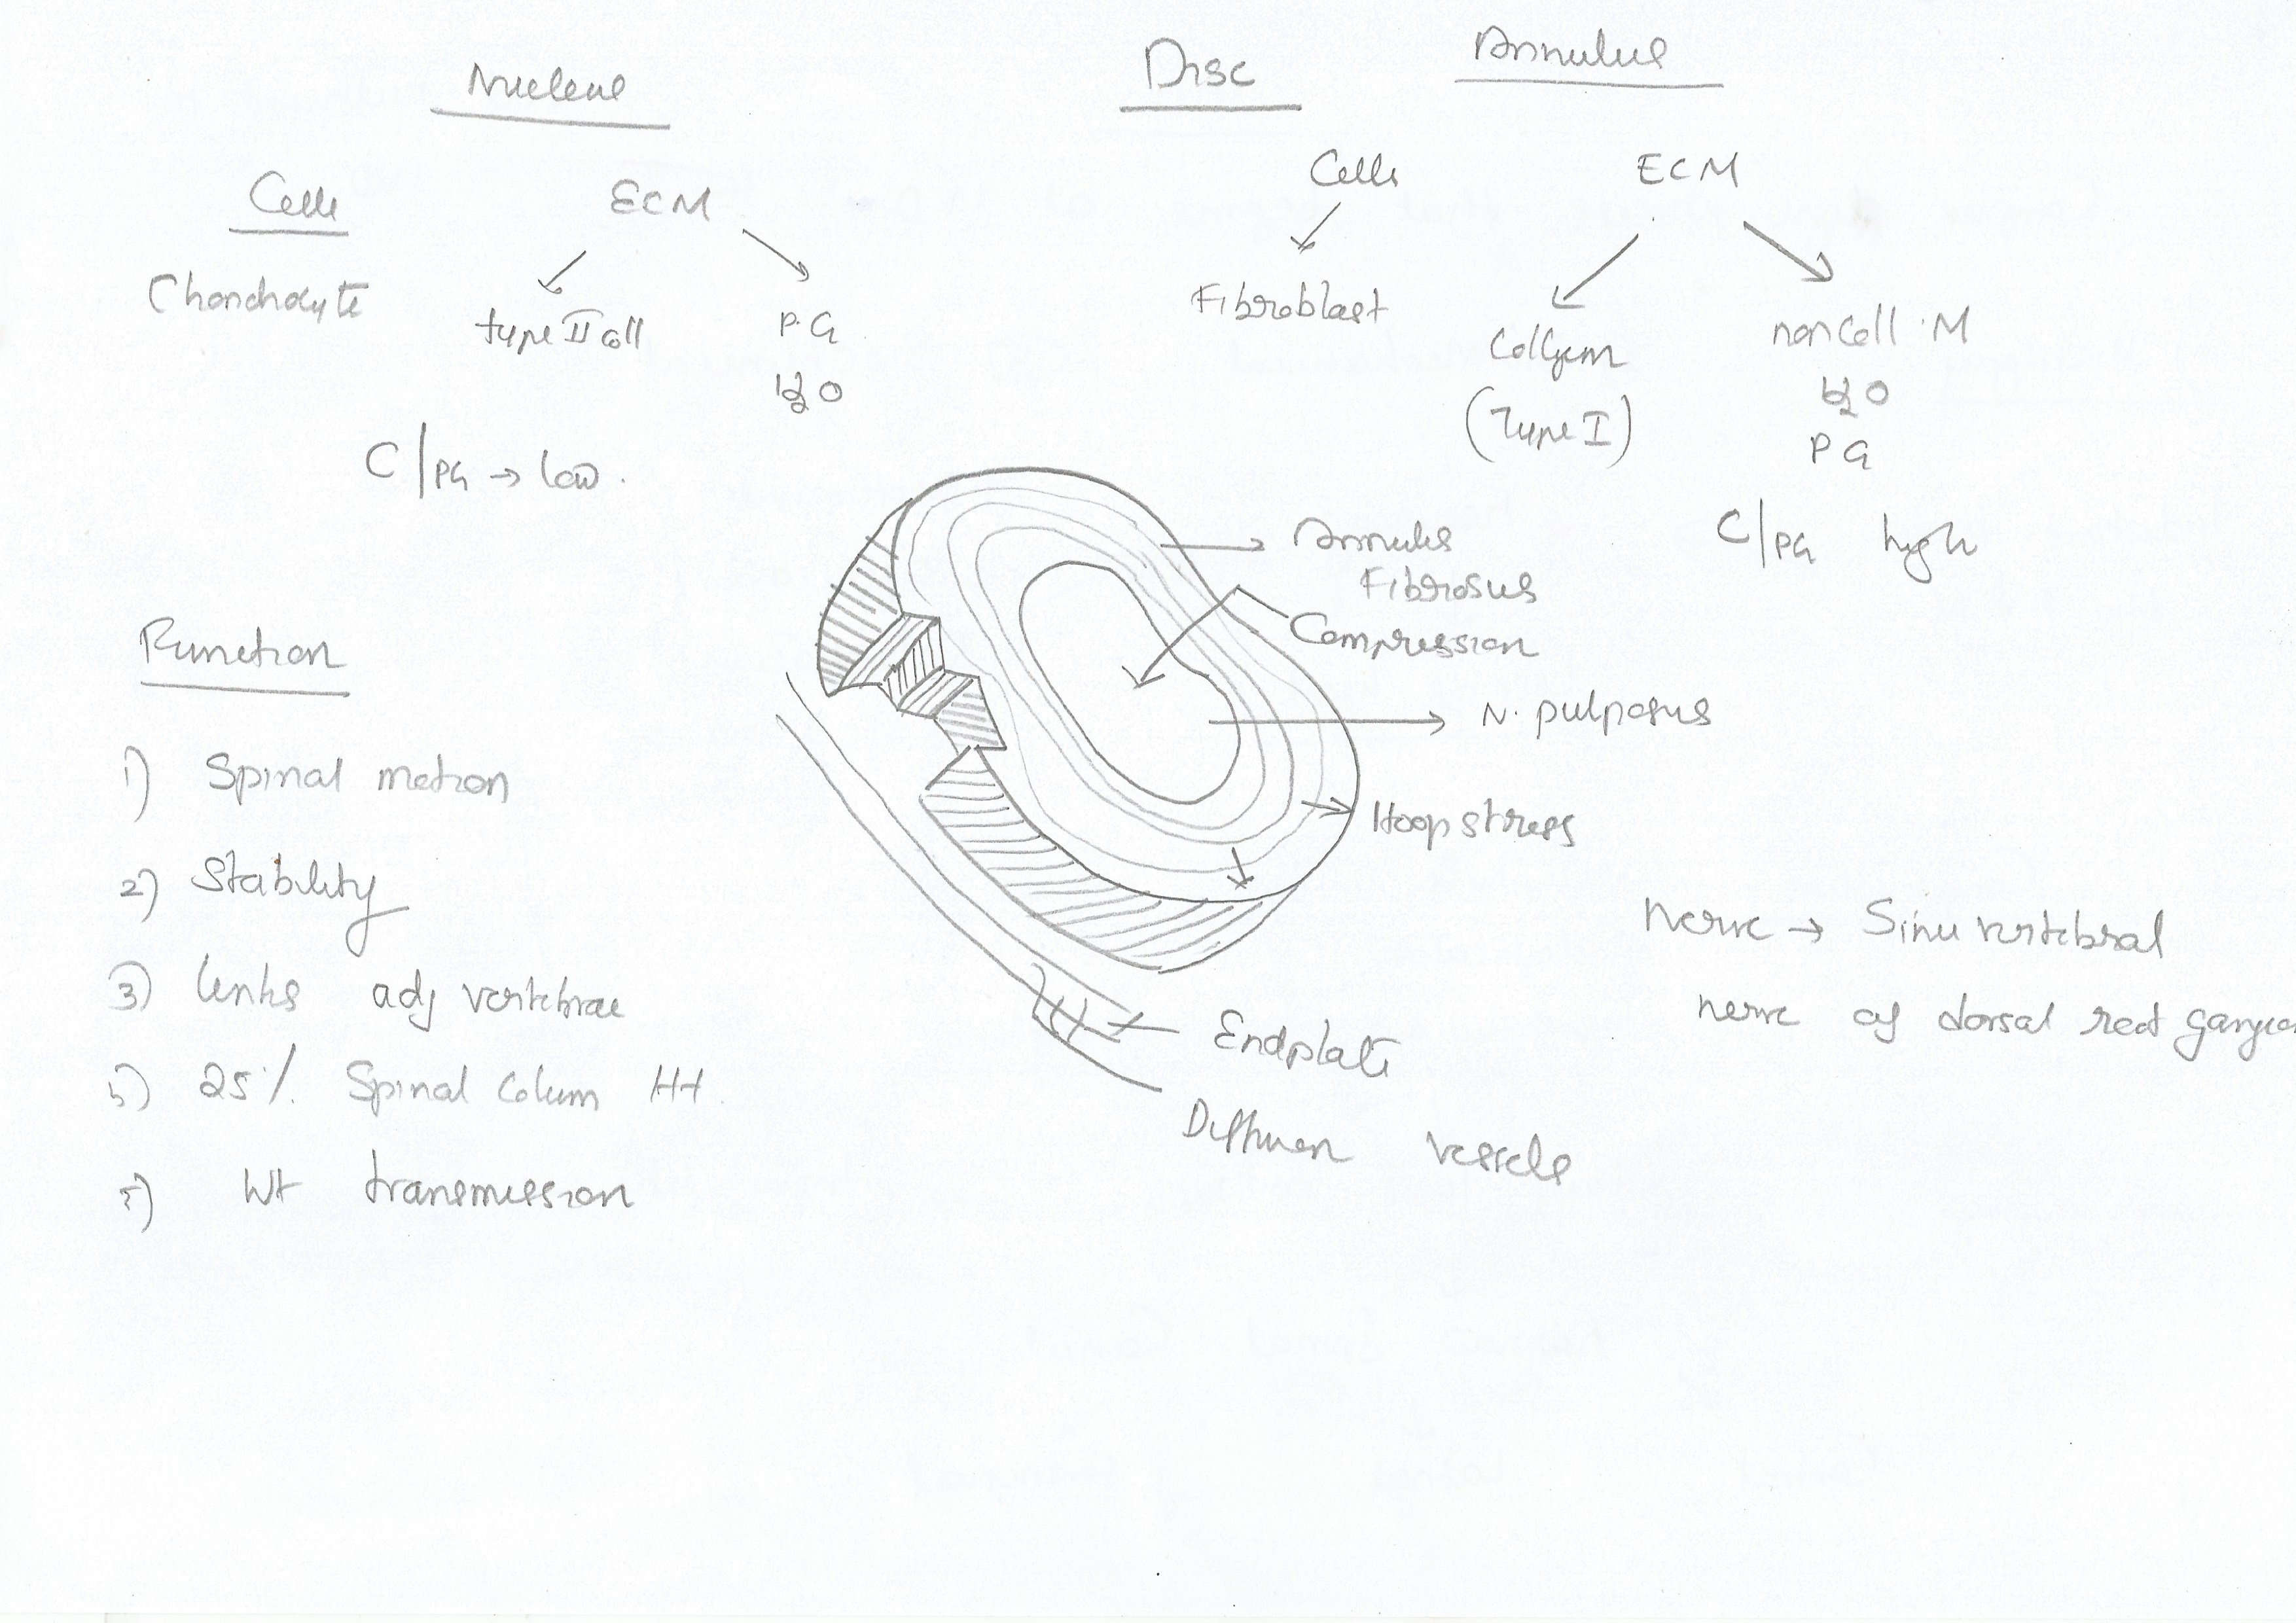 Nucleus
Disc
Annulus
Cells
ECM
Chondrocyte
type II coll
P.G
H2O
C/PG → low.
Cells
ECM
Fibroblast
Collgen
(Type I)
non Coll. M
H2O
PG
C/PG high
Annulus
Fibrosus
Compression
N. pulposus
Hoop stress
Endplate
Diffusion vessels
Nerve → Sinu vertebral
nerve of dorsal root
Function
1) Spinal motion
2) Stability
3) links adj vertebrae
25% Spinal Colum Ht.
5) Wt transmission